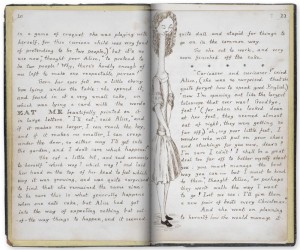 10
in a game of croquet she was playing with
herself, for this curious child was very fond
of pretending to be two people,) "but it's no
use now," thought poor Alice, "to pretend to
be two people! Why, there's hardly enough of
me left to make one respectable person!"
Soon her eyes fell on a little
box lying under the table: she opened it,
and found in it a very small cake, on
which was lying a card with the words
EAT ME beautifully printed on it
in large letters. "I'll eat," said Alice, "and
if it makes me larger, I can reach the key,
and if it makes me smaller, I can creep
under the door, so either way I'll get into
the garden, and I don't care which happens!"
She eat a little bit, and said anxiously
to herself "which way? which way?" and laid
her hand on the top of her head to feel which
way it was growing, and was quite surprised
to find that she remained the same size:
to be sure this is what generally happens
when one eats cake, but Alice had got
into the way of expecting nothing but out-
of-the way things to happen, and it seemed
11
quite dull and stupid for things to
go on in the common way.
So she set to work, and very
soon finished off the cake.
"Curiouser and curiouser!" cried
Alice, (she was so surprised that she
quite forgot how to speak good English,)
"now I'm opening out like the largest
telescope that ever was! Goodbye,
feet!" (for when she looked down
at her feet, they seemed almost
out of sight, they were getting so
far off,) "oh, my poor little feet, I
wonder who will put on your shoes
and stockings for you now, dears?
I'm sure I can't! I shall be a great
deal too far off to bother myself about
you: you must manage the best
way you can — but I must be kind
to them," thought Alice, "or perhaps
they won't walk the way I want
to go! Let me see: I'll give them
a new pair of boots every Christmas."
And she went on planning
to herself how she would manage it